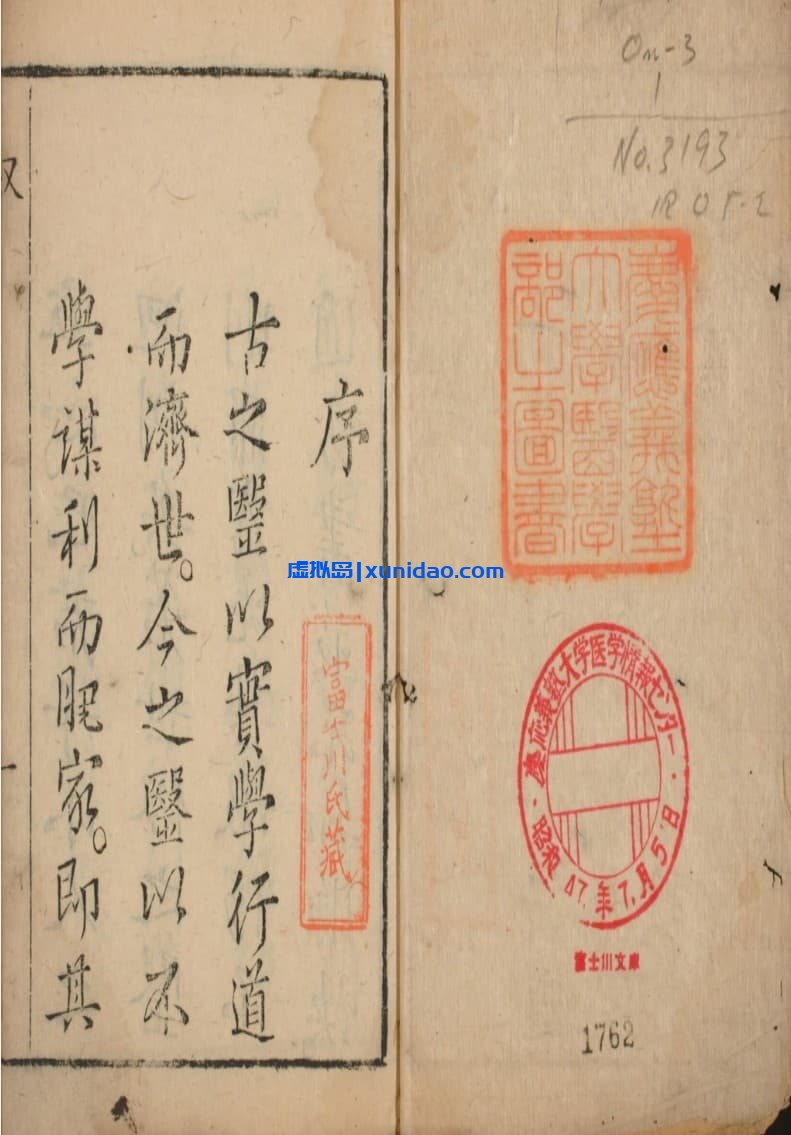 On-3
1
No.3193
慶應義塾
大學醫學
部之圖書
慶応義塾大学医学情報センター
昭和47.年7.月5日
富士川文庫
1762
序
古之醫以實學行道
而濟世。今之醫以不
學謀利而肥家。即其
富士川氏藏
虚拟岛|xunidao.com